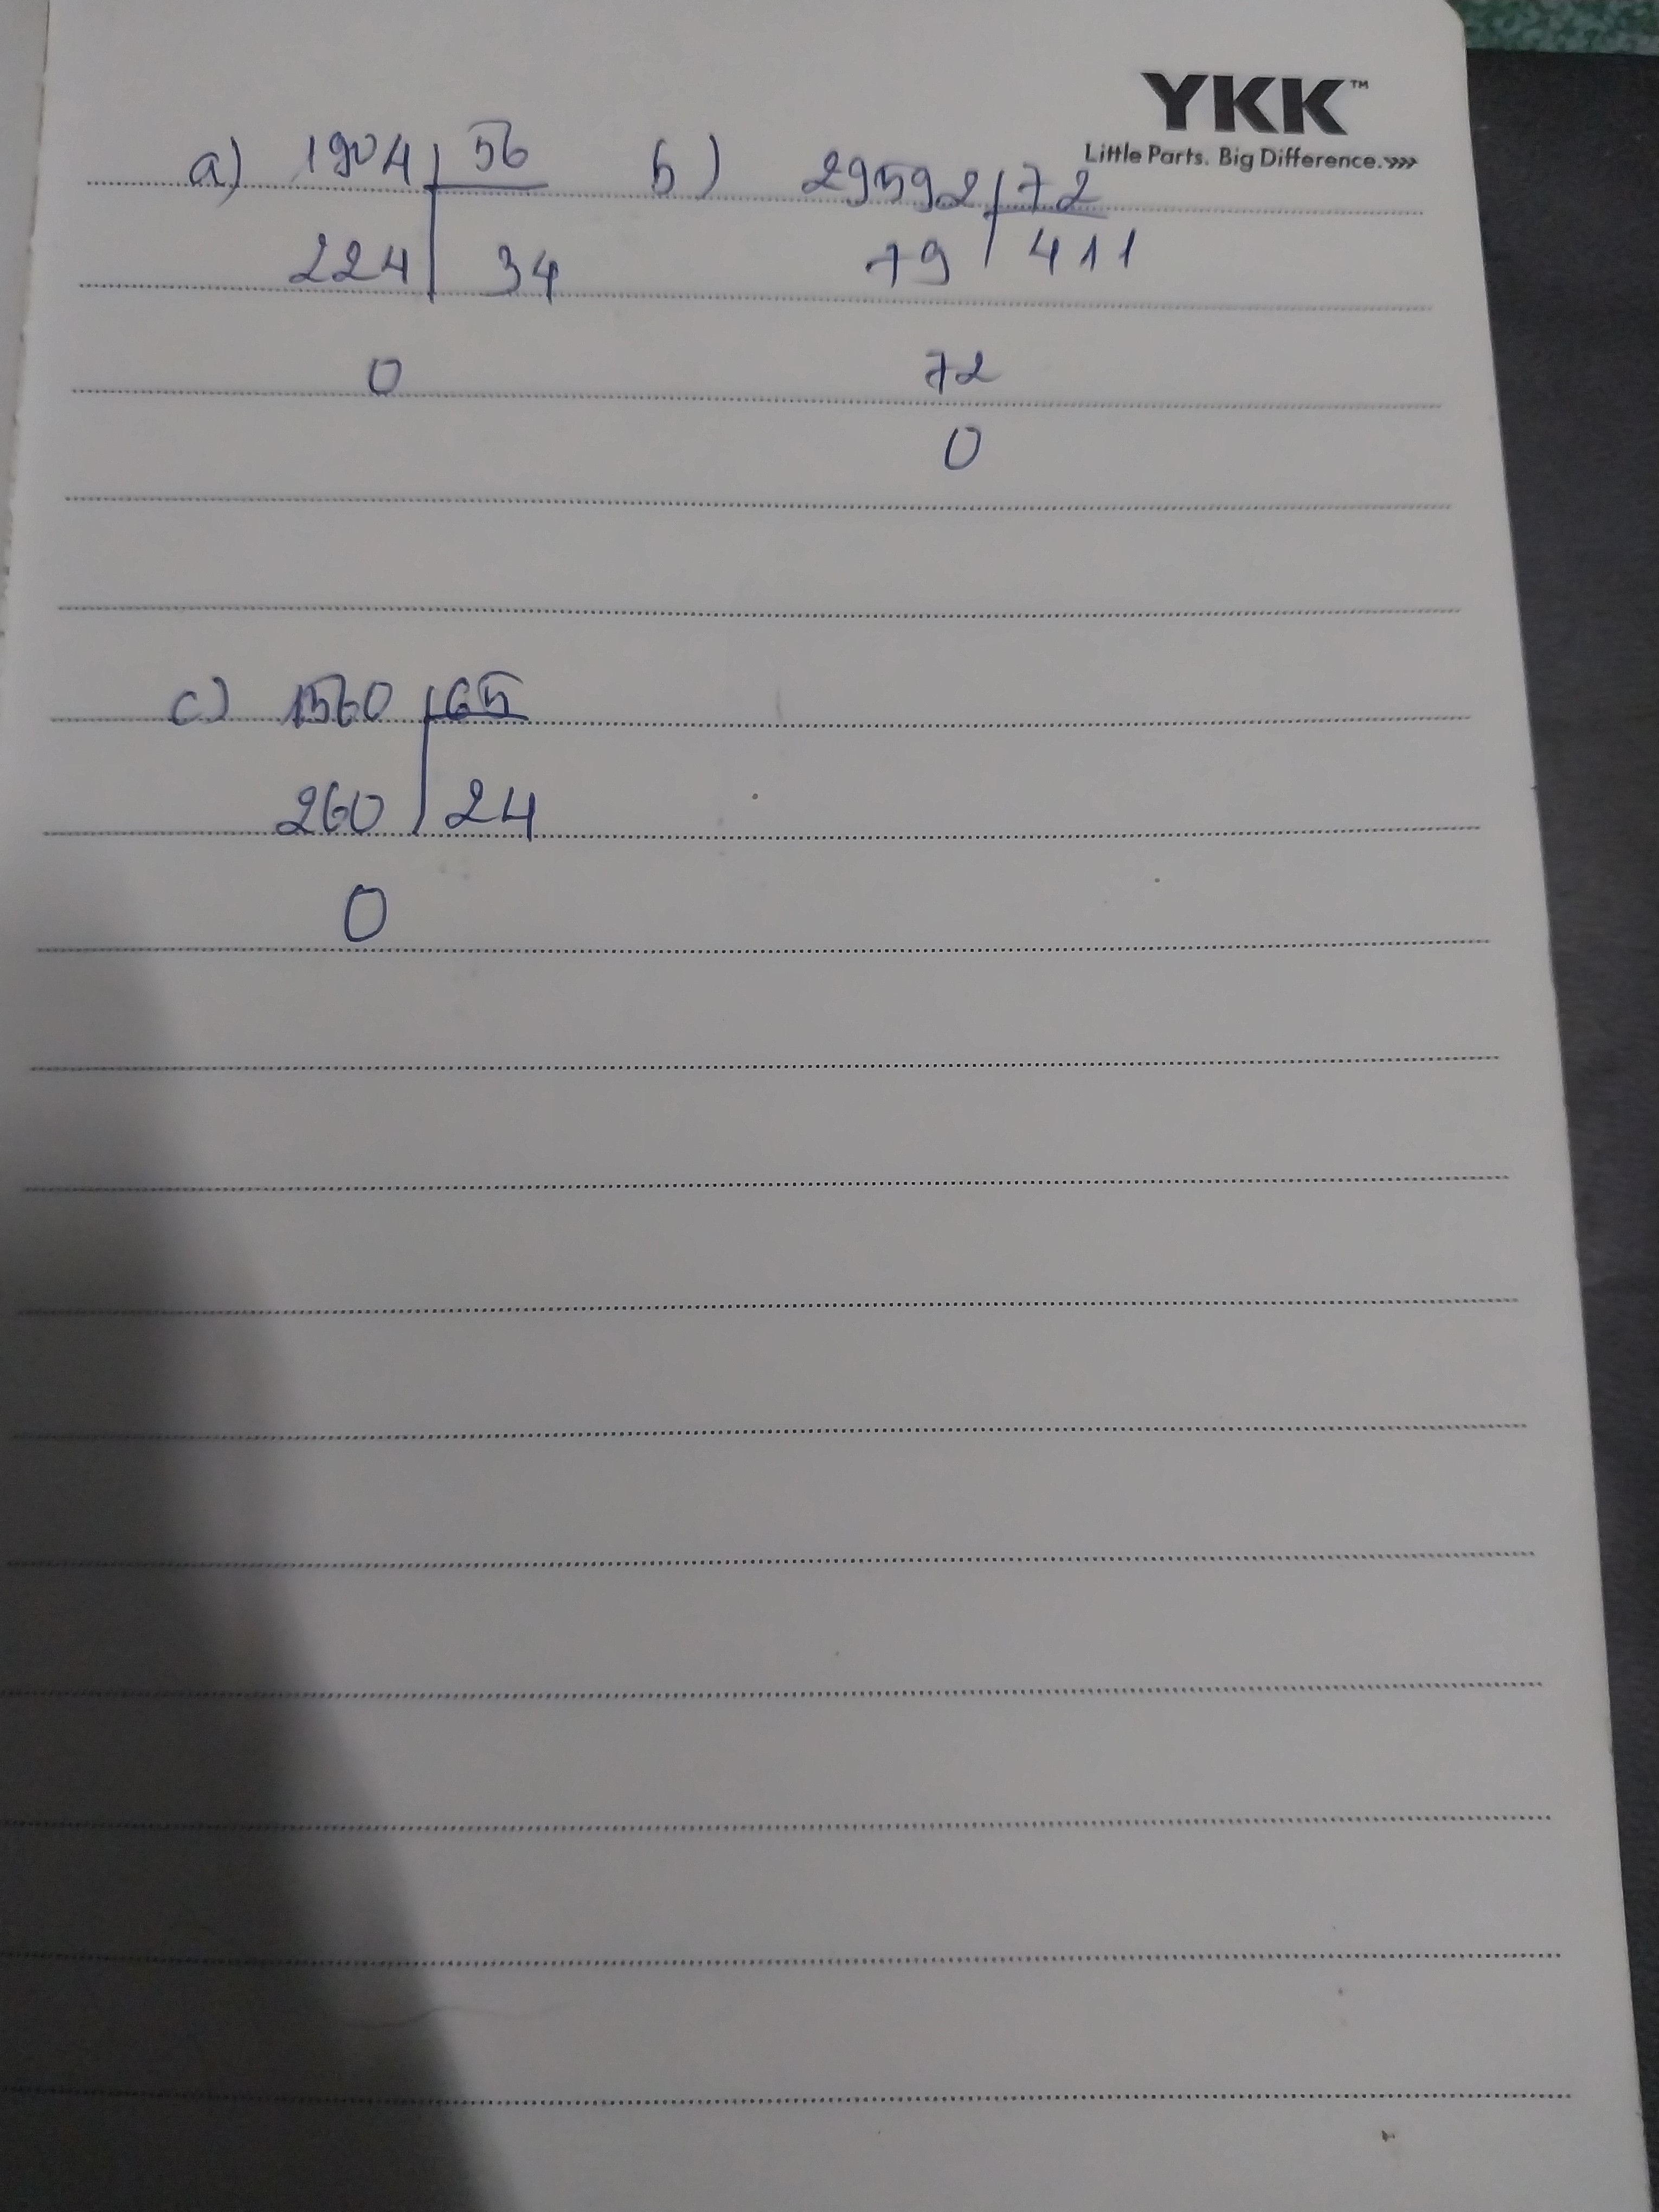 YKK™
Little Parts. Big Difference.»»
a) 1904 56 b) 29592 72
224 34 79 411
0 72
0
c) 1560 65
260 24
0